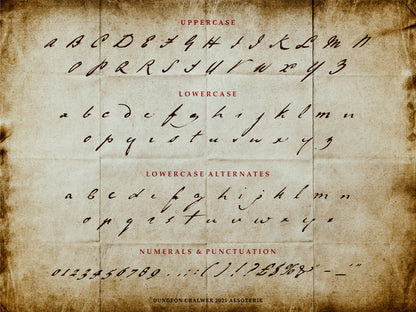 UPPERCASE
A B C D E F G H I J K L M N
O P Q R S T U V W X Y Z
LOWERCASE
a b c d e f g h i j k l m n
o p q r s t u v w x y z
LOWERCASE ALTERNATES
a b c d e f g h i j k l m n
o p q r s t u v w x y z
NUMERALS & PUNCTUATION
0123456789 . , : ; ( ) ! ? £ $ % & " - _ '"
DUNGEON CRALWER 2021 AESOTERIK